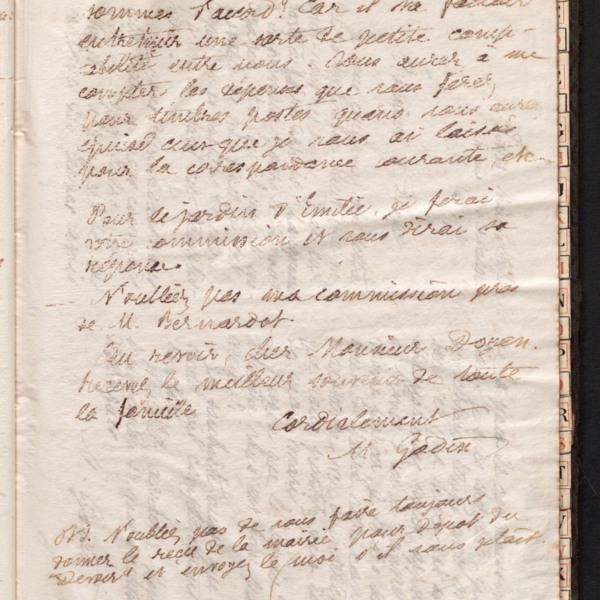 sommes d'accord. Car il va falloir
entretenir une sorte de petite comp-
tabilité entre nous. Vous aurez à me
compter les dépenses que vous ferez
pour timbres postes quand vous aurez
épuisé ceux que je vous ai laissés
pour la correspondance courante etc.
Pour le jardin d'Emilie, je ferai
votre commission et vous dirai sa
réponse.
N'oubliez pas ma commission près
de M. Bernardot.
Au revoir, cher Monsieur Doyen.
Recevez le meilleur souvenir de toute
la famille
Cordialement
M. Godin
N'oubliez pas de vous faire toujours
donner le reçu de la mairie pour dépôt du
Devoir et envoyez le moi s'il vous plait.
H
I
J
K
L
M
N
O
P
Q
R
S
T
V
W
X